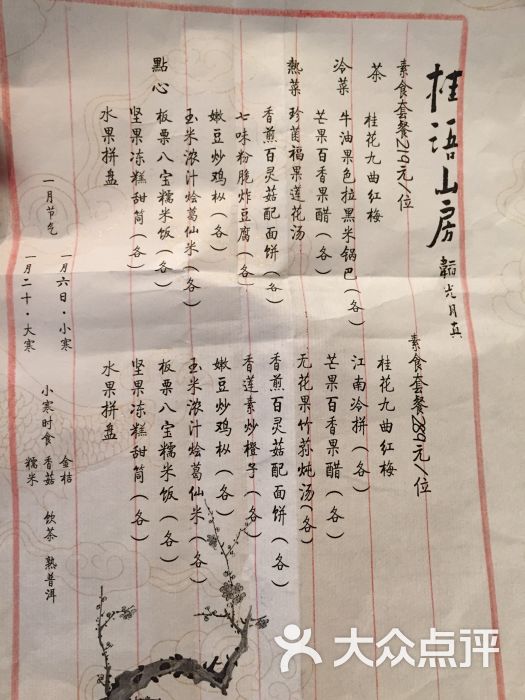 桂语山房
韜光月真
素食套餐219元/位
茶 桂花九曲红梅
冷菜 牛油果色拉黑米锅巴（各）
芒果百香果醋（各）
熱菜 珍菌福果莲花汤
香煎百灵菇配面饼（各）
七味粉脆炸豆腐（各）
嫩豆炒鸡枞（各）
玉米浓汁烩葛仙米（各）
點心 板栗八宝糯米饭（各）
坚果冻糕甜筒（各）
水果拼盘
素食套餐289元/位
桂花九曲红梅
江南冷拼（各）
芒果百香果醋（各）
无花果竹荪炖汤（各）
香煎百灵菇配面饼（各）
香莲素炒橙子（各）
嫩豆炒鸡枞（各）
玉米浓汁烩葛仙米（各）
板栗八宝糯米饭（各）
坚果冻糕甜筒（各）
水果拼盘
一月节气
一月六日·小寒
一月二十·大寒
小寒时食
金桔
香菇
糯米
饮茶 熟普洱
大众点评